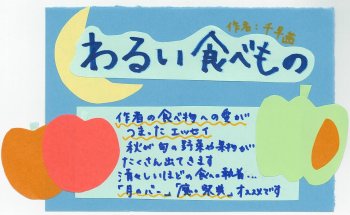 作者:千早茜
わるい食べもの
作者の食べ物への愛が
つまったエッセイ
秋が旬の野菜や果物が
たくさん出てきます
清々しいほどの食への執着…
「月のパン」「魔の祭典」オススメです